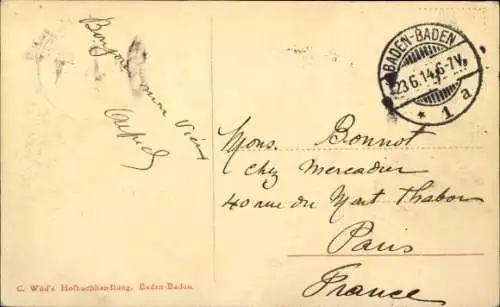 Bonjour mon vieux
BADEN-BADEN
23.6.14.6-7V.
* 1 a
Mons. Bonnot
chez Mercadier
40 rue du Mont Thabor
Paris
France
C. Wild's Hofbuchhandlung, Baden-Baden.